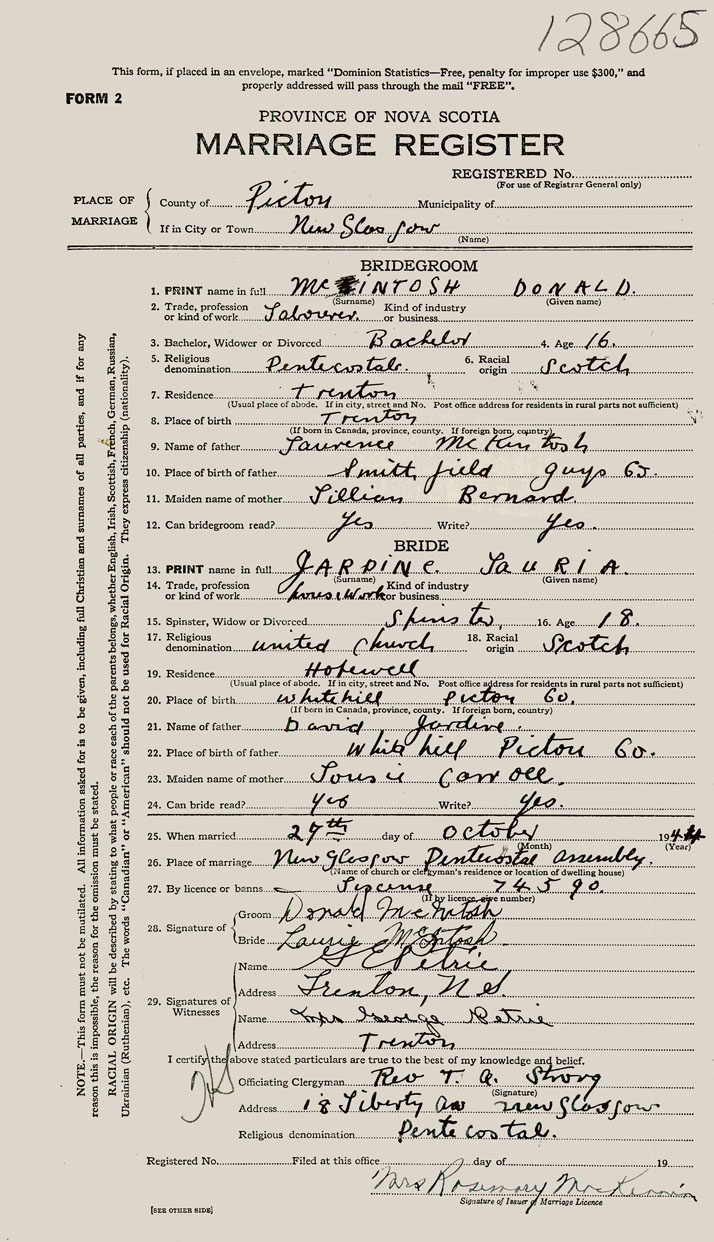 128665
This form, if placed in an envelope, marked "Dominion Statistics—Free, penalty for improper use $300," and
properly addressed will pass through the mail "FREE".
FORM 2
PROVINCE OF NOVA SCOTIA
MARRIAGE REGISTER
REGISTERED No.
(For use of Registrar General only)
PLACE OF MARRIAGE
County of Picton Municipality of
If in City or Town New Glasgow
(Name)
BRIDEGROOM
1. PRINT name in full McINTOSH DONALD.
(Surname) (Given name)
2. Trade, profession or kind of work Labourer. Kind of industry or business
3. Bachelor, Widower or Divorced Bachelor 4. Age 16.
5. Religious denomination Pentecostal. 6. Racial origin Scotch
7. Residence Trenton
(Usual place of abode. If in city, street and No. Post office address for residents in rural parts not sufficient)
8. Place of birth Trenton
(If born in Canada, province, county. If foreign born, country)
9. Name of father Laurence McKintosh
10. Place of birth of father Smithfield guys Co.
11. Maiden name of mother Lillian Bernard.
12. Can bridegroom read? Yes Write? Yes.
BRIDE
13. PRINT name in full JARDINE. LaURIA.
(Surname) (Given name)
14. Trade, profession or kind of work housework Kind of industry or business
15. Spinster, Widow or Divorced Spinster, 16. Age 18.
17. Religious denomination united church 18. Racial origin Scotch
19. Residence Hopewell
(Usual place of abode. If in city, street and No. Post office address for residents in rural parts not sufficient)
20. Place of birth Whitehill Picton Co.
(If born in Canada, province, county. If foreign born, country)
21. Name of father David Jardine.
22. Place of birth of father White hill Picton Co.
23. Maiden name of mother Lousie Carroll.
24. Can bride read? yes Write? yes.
25. When married 27th day of October 1944
(Month) (Year)
26. Place of marriage New Glasgow Pentecostal assembly.
(Name of church or clergyman's residence or location of dwelling house)
27. By licence or banns Liscense 74590.
(If by licence, give number)
28. Signature of
Groom Donald McIntosh
Bride Laurie McIntosh
29. Signatures of Witnesses
Name G E Petrie
Address Trenton, N S.
Name Mrs George Petrie
Address Trenton
I certify the above stated particulars are true to the best of my knowledge and belief.
Officiating Clergyman Rev T. A. Strong
(Signature)
Address 18 Liberty Av new Glasgow
Religious denomination Pentecostal.
Registered No. Filed at this office day of 19
Mrs Rosemary
Signature of Issuer of Marriage Licence
[SEE OTHER SIDE]
NOTE.—This form must not be mutilated. All information asked for is to be given, including full Christian and surnames of all parties, and if for any
reason this is impossible, the reason for the omission must be stated.
RACIAL ORIGIN will be described by stating to what people or race each of the parents belongs, whether English, Irish, Scottish, French, German, Russian,
Ukrainian (Ruthenian), etc. The words "Canadian" or "American" should not be used for Racial Origin. They express citizenship (nationality).